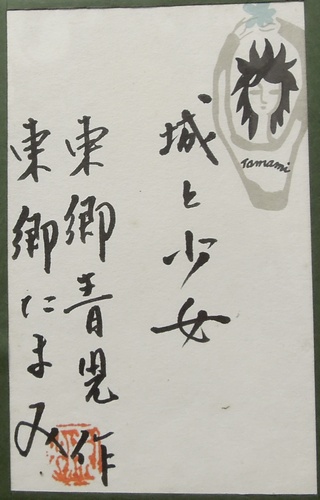 城と少女
東郷青児作
東郷たまみ
Tamami